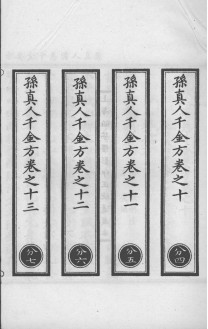 孫真人千金方卷之十
分四
孫真人千金方卷之十一
分五
孫真人千金方卷之十二
分六
孫真人千金方卷之十三
分七